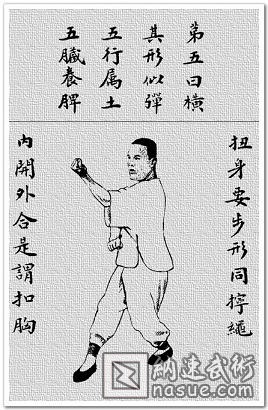 第五曰橫
其形似彈
五行属土
五臟養脾
扭身要步形同擰繩
內開外合是謂扣胸
納速武術
nasue.com